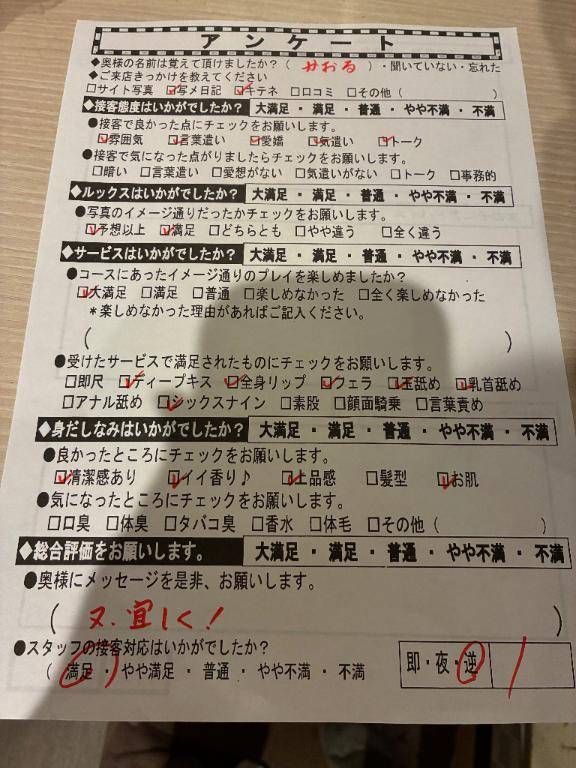 アンケート
◆奥様の名前は覚えて頂けましたか?( かおる )・聞いていない・忘れた
◆ご来店きっかけを教えてください
□サイト写真 ☑写メ日記 ☑キテネ □口コミ □その他( )
◆接客態度はいかがでしたか? 大満足 ・ 満足 ・ 普通 ・ やや不満 ・ 不満
●接客で良かった点にチェックをお願いします。
☑雰囲気 ☑言葉遣い ☑愛嬌 ☑気遣い ☑トーク
●接客で気になった点がありましたらチェックをお願いします。
□暗い □言葉遣い □愛想がない □気遣いがない □トーク □事務的
◆ルックスはいかがでしたか? 大満足 ・ 満足 ・ 普通 ・ やや不満 ・ 不満
●写真のイメージ通りだったかチェックをお願いします。
☑予想以上 ☑満足 □どちらとも □やや違う □全く違う
◆サービスはいかがでしたか? 大満足 ・ 満足 ・ 普通 ・ やや不満 ・ 不満
●コースにあったイメージ通りのプレイを楽しめましたか?
☑大満足 □満足 □普通 □楽しめなかった □全く楽しめなかった
*楽しめなかった理由があればご記入ください。
( )
●受けたサービスで満足されたものにチェックをお願いします。
□即尺 ☑ディープキス ☑全身リップ ☑フェラ ☑玉舐め ☑乳首舐め
□アナル舐め ☑シックスナイン □素股 □顔面騎乗 □言葉責め
◆身だしなみはいかがでしたか? 大満足 ・ 満足 ・ 普通 ・ やや不満 ・ 不満
●良かったところにチェックをお願いします。
☑清潔感あり ☑イイ香り♪ ☑上品感 □髪型 ☑お肌
●気になったところにチェックをお願いします。
□口臭 □体臭 □タバコ臭 □香水 □体毛 □その他( )
◆総合評価をお願いします。 大満足 ・ 満足 ・ 普通 ・ やや不満 ・ 不満
●奥様にメッセージを是非、お願いします。
( 又、宜しく! )
●スタッフの接客対応はいかがでしたか?
( 満足 ・ やや満足 ・ 普通 ・ やや不満 ・ 不満
即・夜・逆 1